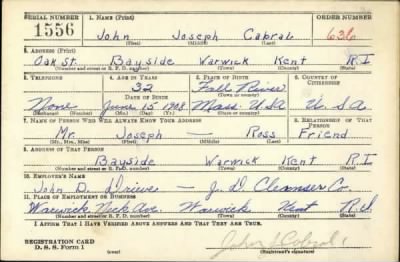 SERIAL NUMBER 1. NAME (Print) ORDER NUMBER
1556 John Joseph Cabral 636
(First) (Middle) (Last)
2. ADDRESS (Print)
Oak St. Bayside Warwick Kent R.I
(Number and street or R. F. D. number) (Town) (County) (State)
3. TELEPHONE 4. AGE IN YEARS 5. PLACE OF BIRTH 6. COUNTRY OF CITIZENSHIP
32 Fall River
DATE OF BIRTH (Town or county)
None June 15 1908. Mass. USA U. S A.
(Exchange) (Number) (Mo.) (Day) (Yr.) (State or country)
7. NAME OF PERSON WHO WILL ALWAYS KNOW YOUR ADDRESS 8. RELATIONSHIP OF THAT PERSON
Mr. Joseph — Ross Friend
(Mr., Mrs., Miss) (First) (Middle) (Last)
9. ADDRESS OF THAT PERSON
Bayside Warwick Kent R I
(Number and street or R. F. D. number) (Town) (County) (State)
10. EMPLOYER'S NAME
John D. — J. D. Cleanser Co.
11. PLACE OF EMPLOYMENT OR BUSINESS
Warwick Neck Ave. Warwick Kent R.I.
(Number and street or R. F. D. number) (Town) (County) (State)
I AFFIRM THAT I HAVE VERIFIED ABOVE ANSWERS AND THAT THEY ARE TRUE.
REGISTRATION CARD
D. S. S. Form 1 (over) John J Cabral
(Registrant's signature)